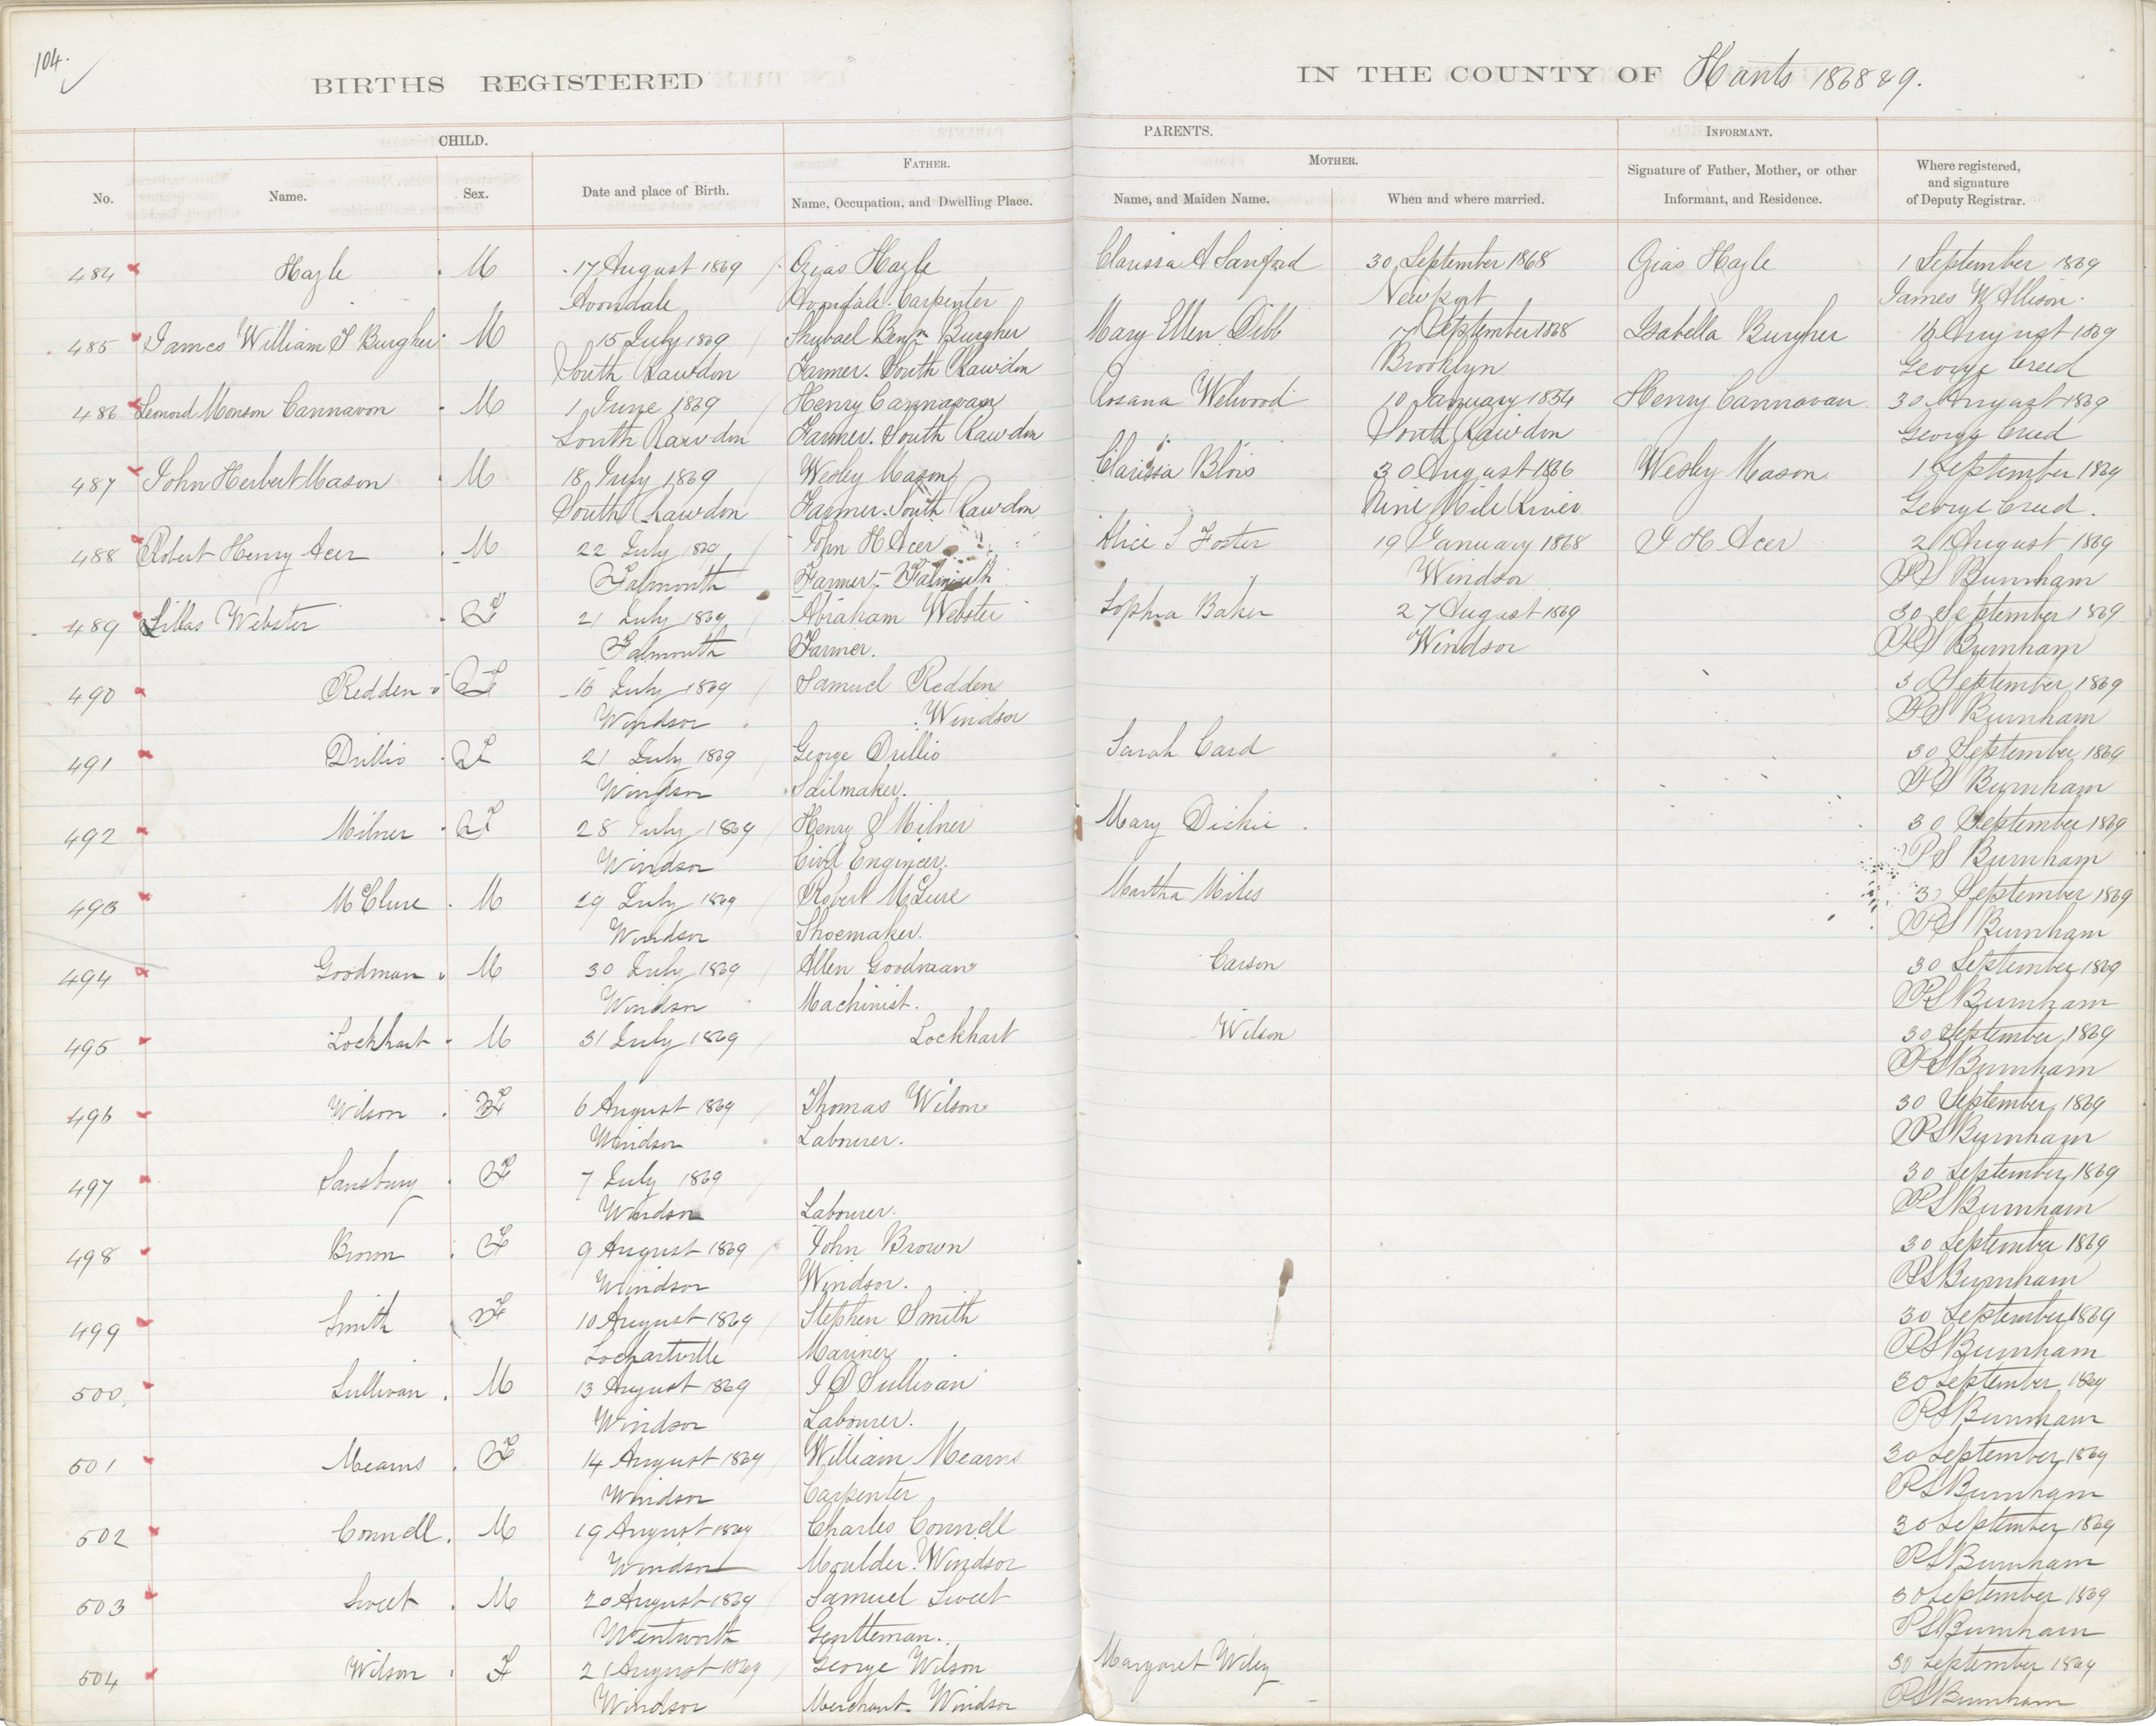 104.
BIRTHS REGISTERED IN THE COUNTY OF Hants 1868 & 9.
CHILD. PARENTS. INFORMANT.
FATHER. MOTHER.
No. Name. Sex. Date and place of Birth. Name, Occupation, and Dwelling Place. Name, and Maiden Name. When and where married. Signature of Father, Mother, or other Informant, and Residence. Where registered, and signature of Deputy Registrar.
484 Hazle M 17 August 1869 Ozias Hazle Clarissa A Sanford 30 September 1868 Ozias Hazle 1 September 1869
Avondale Avondale. Carpenter Newport James W Allison.
485 James William S Burgher M 15 July 1869 Shubael Benjn Burgher Mary Ellen Dibb 17 September 1868 Isabella Burgher August 1869
South Rawdon Farmer. South Rawdon Brooklyn George Creed
486 Leonord Monson Cannavon M 1 June 1869 Henry Cannavan Rosana Welwood 10 January 1854 Henry Cannavan 30 August 1869
South Rawdon Farmer. South Rawdon South Rawdon George Creed
487 John Herbert Mason M 18 July 1869 Wesley Mason Clarissa Blois 30 August 1866 Wesley Mason 1 September 1869
South Rawdon Farmer. South Rawdon Nine Mile River George Creed.
488 Robert Henry Acer M 22 July 1869 John H Acer Alice S Foster 19 January 1868 J H Acer 21 August 1869
Falmouth Farmer - Falmouth Windsor P S Burnham
489 Sillas Webster F 21 July 1869 Abraham Webster Sophia Baker 27 August 1869 30 September 1869
Falmouth Farmer. Windsor P S Burnham
490 Redden F 15 July 1869 Samuel Redden 30 September 1869
Windsor Windsor P S Burnham
491 Drillio F 21 July 1869 George Drillio Sarah Card 30 September 1869
Windsor Sailmaker. P S Burnham
492 Milner F 28 July 1869 Henry S Milner Mary Dickie 30 September 1869
Windsor Civil Engineer. P S Burnham
493 McClure M 29 July 1869 Robert McLure Martha Miles 30 September 1869
Windsor Shoemaker. P S Burnham
494 Goodman M 30 July 1869 Allen Goodman Carson 30 September 1869
Windsor Machinist. P S Burnham
495 Lockhart M 31 July 1869 Lockhart Wilson 30 September 1869
P S Burnham
496 Wilson F 6 August 1869 Thomas Wilson 30 September 1869
Windsor Labourer. P S Burnham
497 Sansbury F 7 July 1869 30 September 1869
Windsor Labourer. P S Burnham
498 Brown F 9 August 1869 John Brown 30 September 1869
Windsor Windsor. P S Burnham
499 Smith F 10 August 1869 Stephen Smith 30 September 1869
Lochartville Mariner P S Burnham
500 Sullivan M 13 August 1869 J O Sullivan 30 September 1869
Windsor Labourer. P S Burnham
501 Mearns F 14 August 1869 William Mearns 30 September 1869
Windsor Carpenter P S Burnham
502 Connell M 19 August 1869 Charles Connell 30 September 1869
Windsor Moulder. Windsor P S Burnham
503 Sweet M 20 August 1869 Samuel Sweet 30 September 1869
Wentworth Gentleman. P S Burnham
504 Wilson F 21 August 1869 George Wilson Margaret Wiley 30 September 1869
Windsor Merchant. Windsor P S Burnham